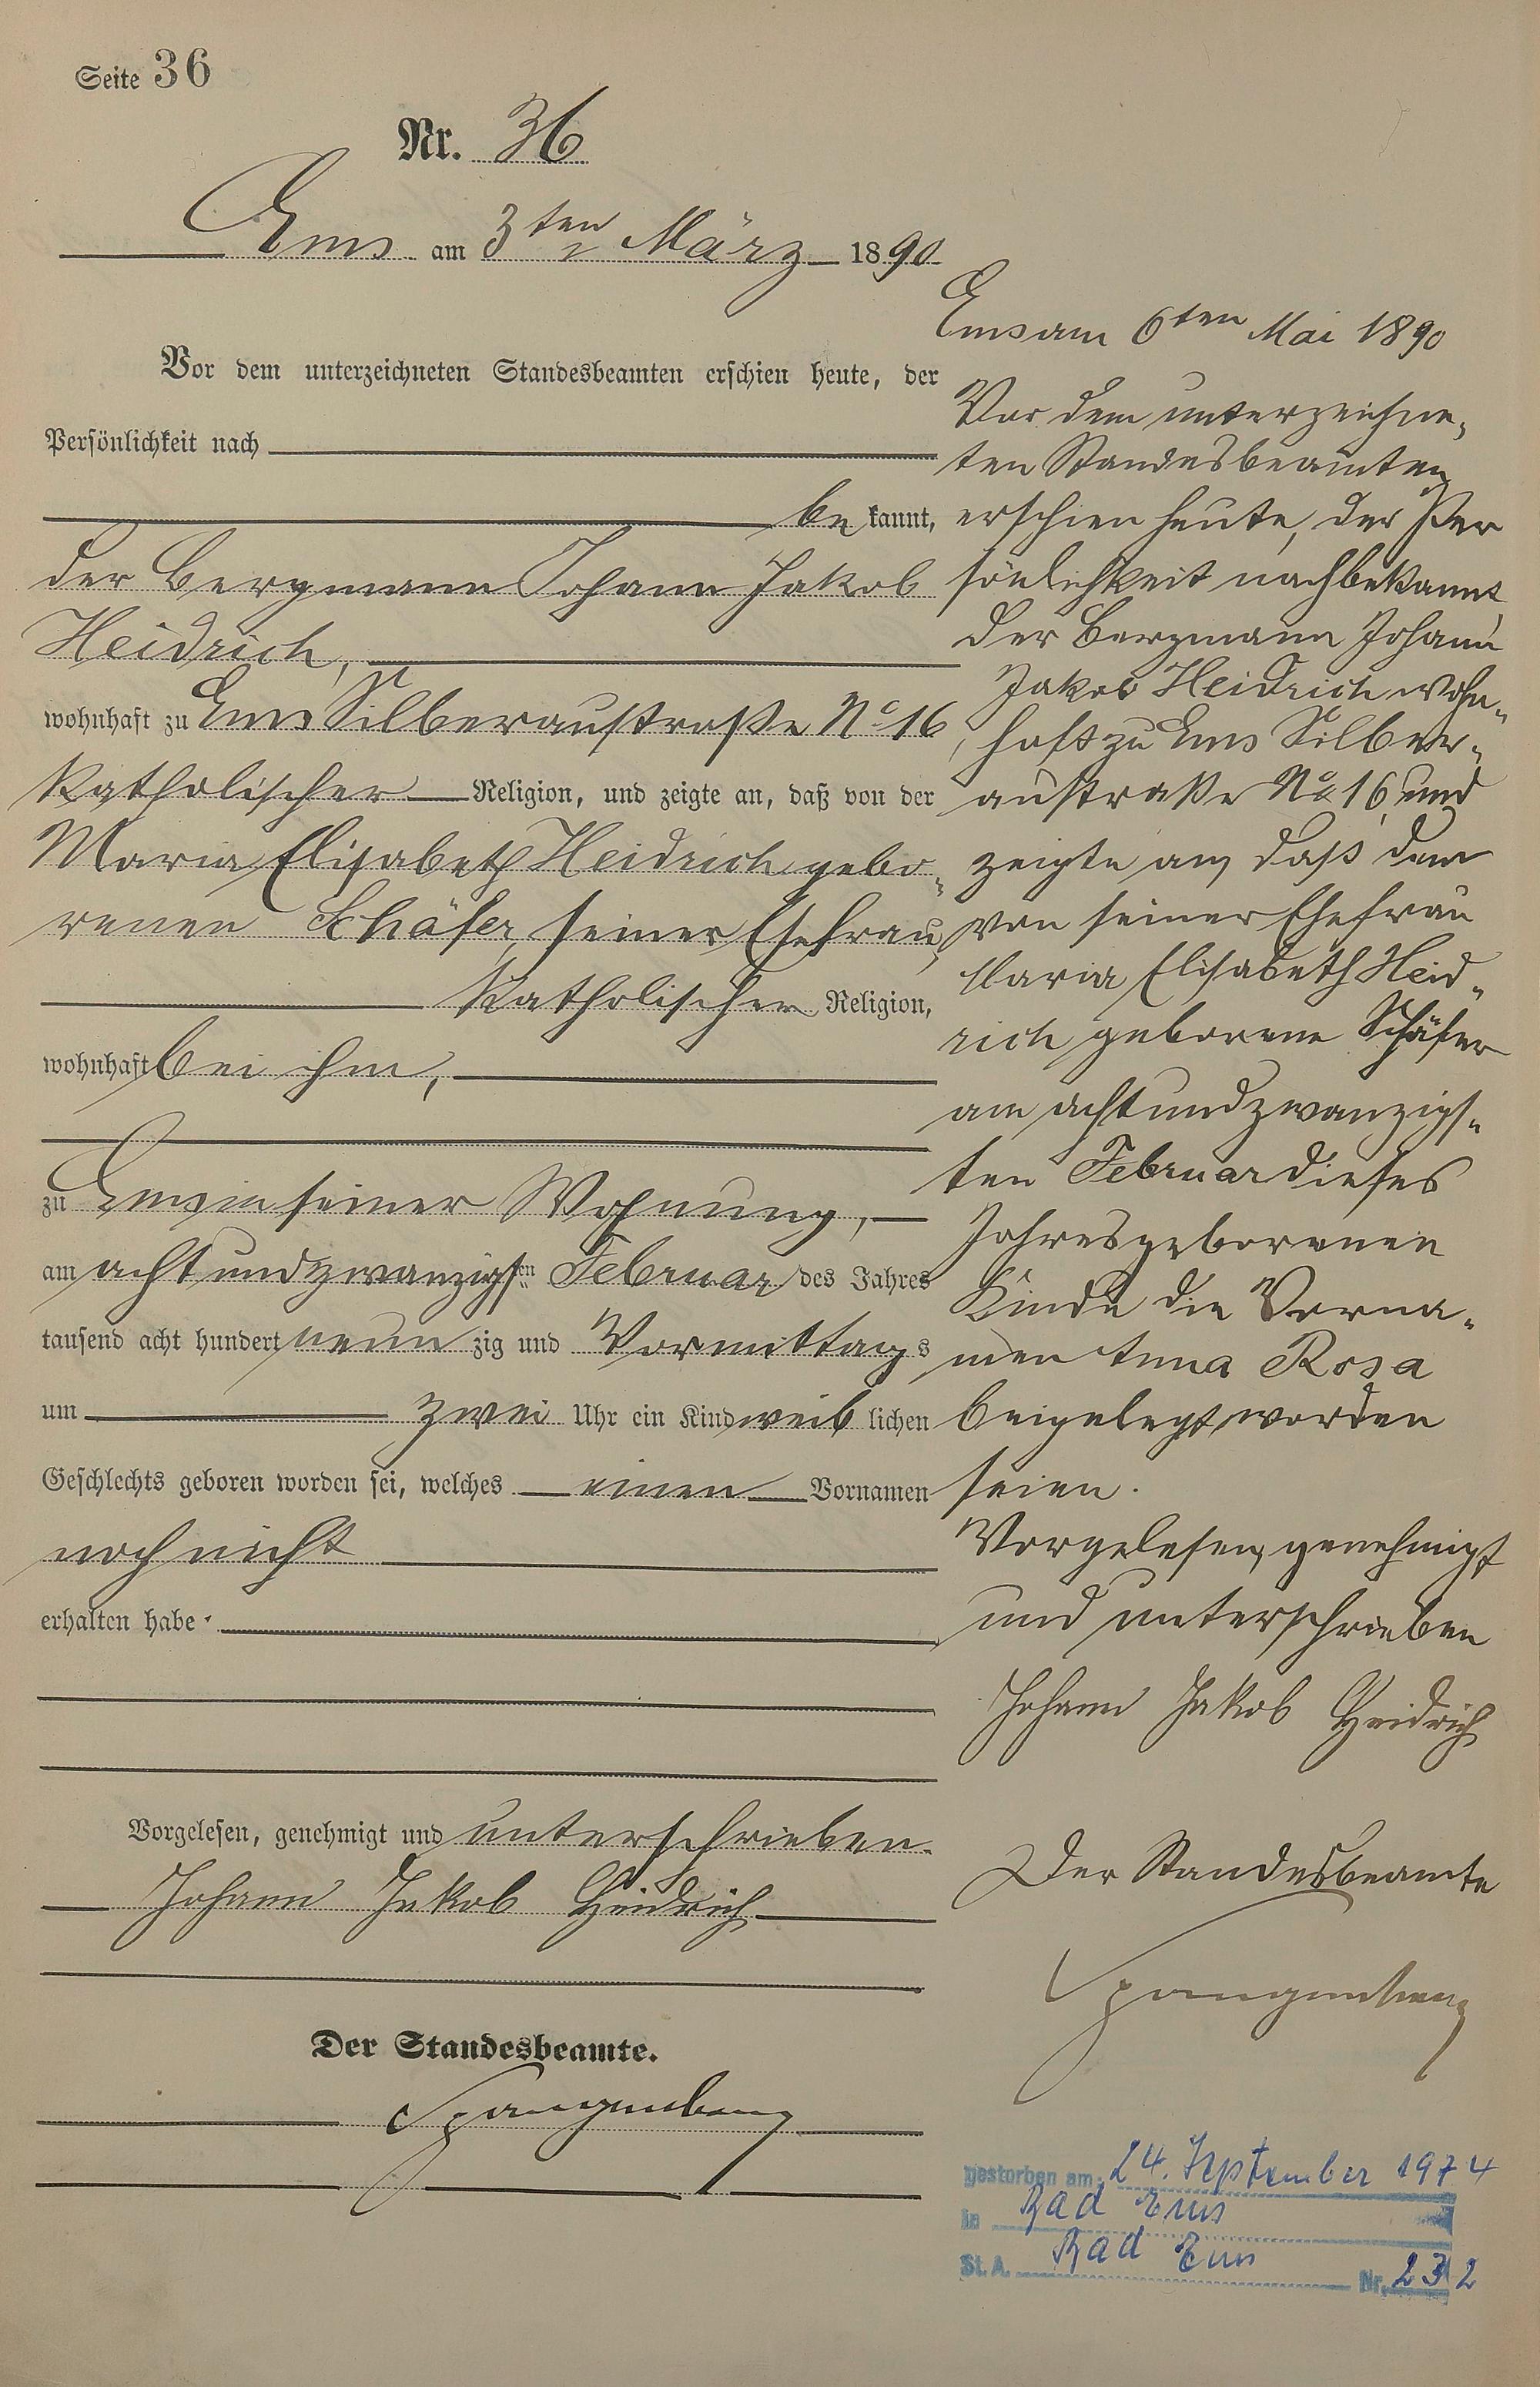 Seite 36
Nr. 36
Ems am 3ten März 1890
Vor dem unterzeichneten Standesbeamten erschien heute, der
Persönlichkeit nach
bekannt,
der Bergmann Johann Jakob
Heidrich,
wohnhaft zu Ems Silberaustraße No 16
katholischer Religion, und zeigte an, daß von der
Maria Elisabeth Heidrich gebo-
renen Schäfer, seiner Ehefrau,
katholischer Religion,
wohnhaft bei ihm,
zu Ems in seiner Wohnung,
am achtundzwanzigsten Februar des Jahres
tausend acht hundert neunzig und Vormittags
um zwei Uhr ein Kind weiblichen
Geschlechts geboren worden sei, welches einen Vornamen
noch nicht
erhalten habe.
Vorgelesen, genehmigt und unterschrieben.
Johann Jakob Heidrich
Der Standesbeamte.
Spangenberg
Ems am 6ten Mai 1890
Vor dem unterzeichne-
ten Standesbeamten
erschien heute, der Per
sönlichkeit nach bekannt,
der Bergmann Johann
Jakob Heidrich wohn-
haft zu Ems Silber-
austraße No 16, und
zeigte an, daß dem
von seiner Ehefrau
Maria Elisabeth Heid-
rich geborene Schäfer
am achtundzwanzigs-
ten Februar dieses
Jahres geborenen
Kinde die Vorna-
men Anna Rosa
beigelegt worden
seien.
Vorgelesen, genehmigt
und unterschrieben
Johann Jakob Heidrich
Der Standesbeamte
Spangenberg
gestorben am 24. September 1974
in Bad Ems
St. A. Bad Ems Nr. 232